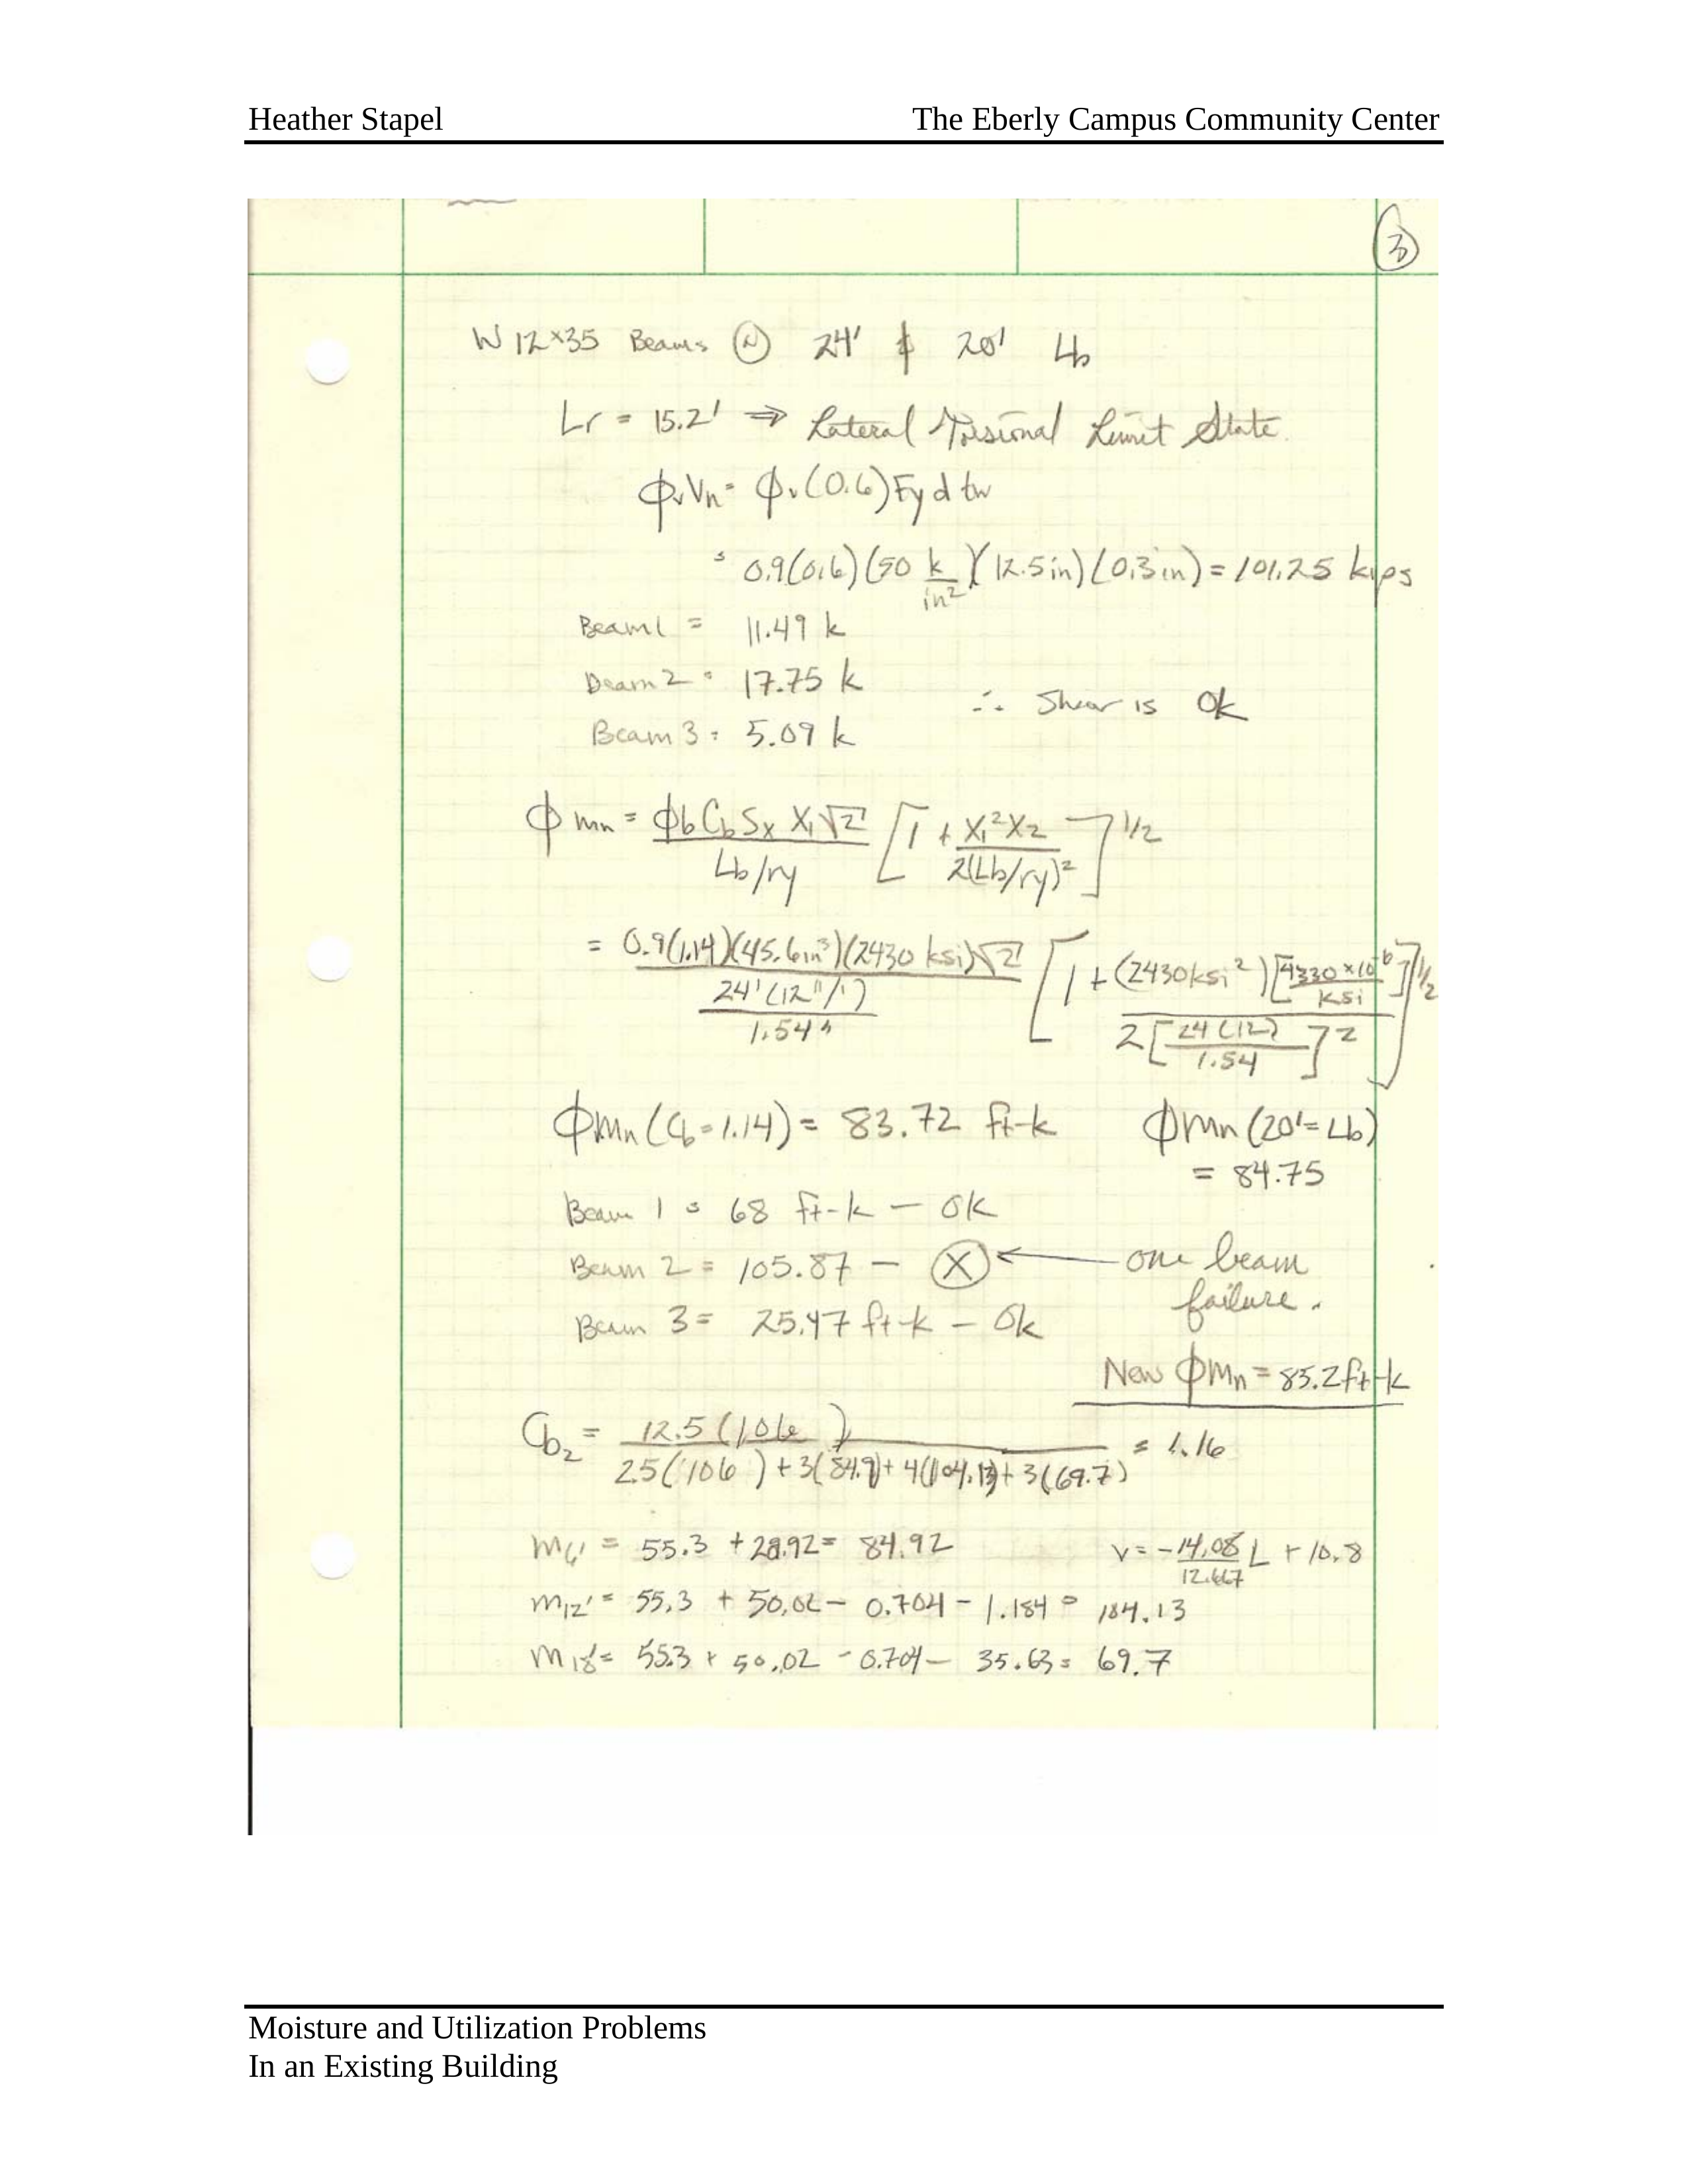 Heather Stapel The Eberly Campus Community Center
3
W 12x35 Beams @ 24' & 20' Lb
Lr = 15.2' ⇒ Lateral Torsional Limit State.
ϕvVn = ϕv(0.6)Fy d tw
= 0.9(0.6)(50 k/in²)(12.5in)(0.3in) = 101.25 kips
Beam 1 = 11.49 k
Beam 2 = 17.75 k
∴ Shear is Ok
Beam 3 = 5.09 k
ϕMn = ϕb Cb Sx X1√2 / (Lb/ry) [1 + X1²X2 / 2(Lb/ry)²]^1/2
= 0.9(1.14)(45.6in³)(2430 ksi)√2 / (24'(12"/')/1.54") [1 + (2430ksi²)[4330×10^-6/ksi] / 2[24(12)/1.54]²]^1/2
ϕMn(Cb=1.14) = 83.72 ft-k ϕMn(20'=Lb)
= 84.75
Beam 1 = 68 ft-k – OK
Beam 2 = 105.87 – X ← one beam
failure.
Beam 3 = 25.47 ft-k – Ok
New ϕMn = 85.2 ft-k
Cb2 = 12.5(106) / 2.5(106) + 3(84.9) + 4(104.13) + 3(69.7) = 1.16
M6' = 55.3 + 28.92 = 84.92 V = -14.08/12.667 L + 10.8
M12' = 55.3 + 50.02 - 0.704 - 1.184 = 104.13
M18' = 55.3 + 50.02 - 0.704 - 35.63 = 69.7
Moisture and Utilization Problems
In an Existing Building